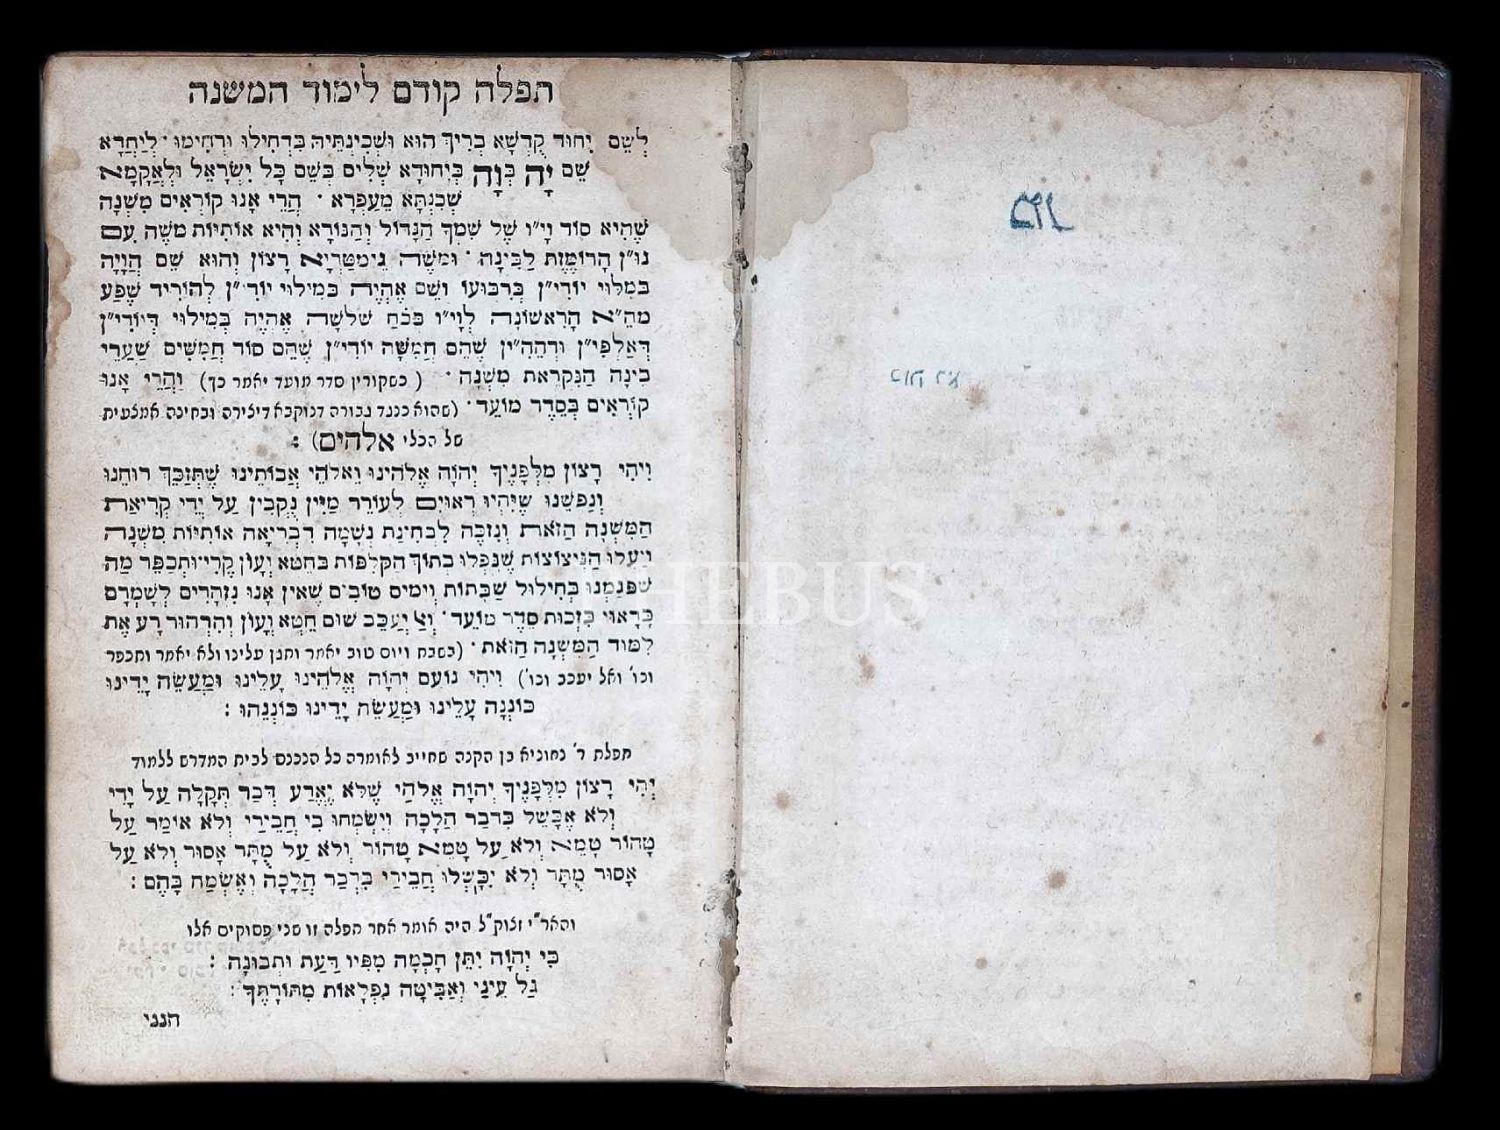 תפלה קודם לימוד המשנה
לְשֵׁם יִחוּד קֻדְשָׁא בְרִיךְ הוּא וּשְׁכִינְתֵּיהּ בִּדְחִילוּ וּרְחִימוּ · לְיַחֲדָא
שֵׁם יָהּ בְּוָה בְּיִחוּדָא שְׁלִים בְּשֵׁם כָּל יִשְׂרָאֵל וְלַאֲקָמָא
שְׁכִנְתָּא מֵעַפְרָא · הֲרֵי אָנוּ קוֹרְאִים מִשְׁנָה
שֶׁהִיא סוֹד וָי״ו שֶׁל שִׁמְךָ הַגָּדוֹל וְהַנּוֹרָא וְהִיא אוֹתִיּוֹת מֹשֶׁה עִם
נוּ״ן הָרוֹמֶזֶת לַבִּינָה · וּמֹשֶׁה גִימַטְרִיָּא רָצוֹן וְהוּא שֵׁם הֲוָיָה
בְּמִלּוּי יוּדִי״ן בְּרִבּוּעוֹ וְשֵׁם אֶהְיֶה בְּמִילוּי יוּדִי״ן לְהוֹרִיד שֶׁפַע
מֵהֵ״א הָרִאשׁוֹנָה לְוָי״ו בְּכֹחַ שְׁלֹשָׁה אֶהְיֶה בְּמִילוּי דְּיוּדִי״ן
דְּאַלְפִי״ן וּדְהֵהִ״ין שֶׁהֵם חֲמִשָּׁה יוּדִי״ן שֶׁהֵם סוֹד חֲמִשִּׁים שַׁעֲרֵי
בִינָה הַנִּקְרֵאת מִשְׁנָה · (כשקורין סדר מועד יאמר כך) וַהֲרֵי אָנוּ
קוֹרְאִים בְּסֵדֶר מוֹעֵד · (שהוא כנגד גבורה דנוקבא דיצירה ובחינה אמצעית
של הכלי אלהים) :
וִיהִי רָצוֹן מִלְּפָנֶיךָ יְהֹוָה אֱלֹהֵינוּ וֵאלֹהֵי אֲבוֹתֵינוּ שֶׁתְּזַכֵּךְ רוּחֵנוּ
וְנַפְשֵׁנוּ שֶׁיִּהְיוּ רְאוּיִם לְעוֹרֵר מַיִּין נֻקְבִין עַל יְדֵי קְרִיאַת
הַמִּשְׁנָה הַזֹּאת וְנִזְכֶּה לִבְחִינַת נְשָׁמָה דִבְרִיאָה אוֹתִיּוֹת מִשְׁנָה
וְיַעֲלוּ הַנִּיצוֹצוֹת שֶׁנָּפְלוּ בְּתוֹךְ הַקְּלִפּוֹת בְּחֵטְא וְעָוֹן קֶרִי וּתְכַפֵּר מַה
שֶּׁפָּגַמְנוּ בְּחִילוּל שַׁבָּתוֹת וְיָמִים טוֹבִים שֶׁאֵין אָנוּ נִזְהָרִים לְשָׁמְרָם
כָּרָאוּי בִּזְכוּת סֵדֶר מוֹעֵד · וְאַל יְעַכֵּב שׁוּם חֵטְא וְעָוֹן וְהִרְהוּר רָע אֶת
לִמּוּד הַמִּשְׁנָה הַזֹּאת · (בשבת ויום טוב יאמר ותגן עלינו ולא יאמר ותכפר
וכו' ואל יעכב וכו') וִיהִי נוֹעַם יְהֹוָה אֱלֹהֵינוּ עָלֵינוּ וּמַעֲשֵׂה יָדֵינוּ
כּוֹנְנָה עָלֵינוּ וּמַעֲשֵׂה יָדֵינוּ כּוֹנְנֵהוּ :
תפלת ר' נחוניא בן הקנה שחייב לאומרה כל הנכנס לבית המדרש ללמוד
יְהִי רָצוֹן מִלְּפָנֶיךָ יְהֹוָה אֱלֹהַי שֶׁלֹּא יֶאֱרַע דְּבַר תְּקָלָה עַל יָדִי
וְלֹא אֶכָּשֵׁל בִּדְבַר הֲלָכָה וְיִשְׂמְחוּ בִי חֲבֵירַי וְלֹא אוֹמַר עַל
טָהוֹר טָמֵא וְלֹא עַל טָמֵא טָהוֹר וְלֹא עַל מֻתָּר אָסוּר וְלֹא עַל
אָסוּר מֻתָּר וְלֹא יִכָּשְׁלוּ חֲבֵירַי בִּדְבַר הֲלָכָה וְאֶשְׂמַח בָּהֶם :
והאר״י זצוק״ל היה אומר אחר תפלה זו שני פסוקים אלו
כִּי יְהֹוָה יִתֵּן חָכְמָה מִפִּיו דַּעַת וּתְבוּנָה :
גַּל עֵינַי וְאַבִּיטָה נִפְלָאוֹת מִתּוֹרָתֶךָ :
הנני
PHEBUS